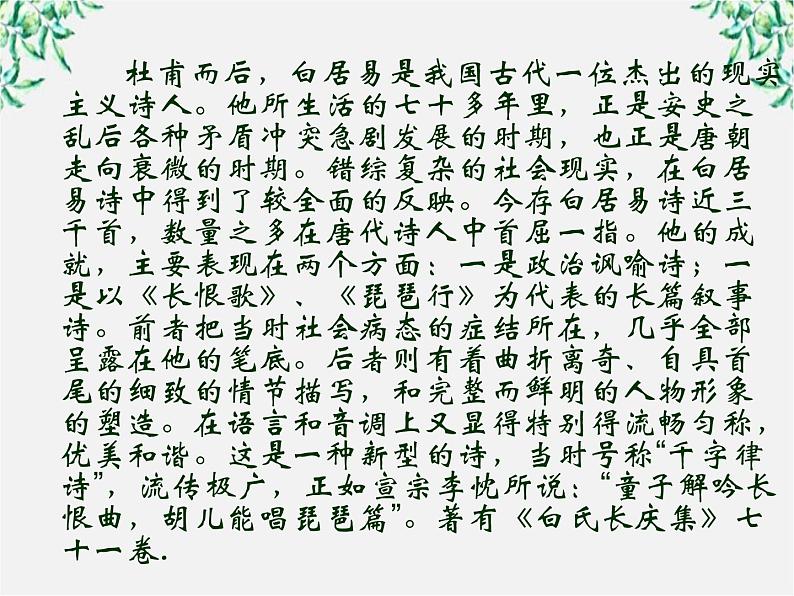 杜甫而后，白居易是我国古代一位杰出的现实
主义诗人。他所生活的七十多年里，正是安史之
乱后各种矛盾冲突急剧发展的时期，也正是唐朝
走向衰微的时期。错综复杂的社会现实，在白居
易诗中得到了较全面的反映。今存白居易诗近三
千首，数量之多在唐代诗人中首屈一指。他的成
就，主要表现在两个方面：一是政治讽喻诗；一
是以《长恨歌》、《琵琶行》为代表的长篇叙事
诗。前者把当时社会病态的症结所在，几乎全部
呈露在他的笔底。后者则有着曲折离奇、自具首
尾的细致的情节描写，和完整而鲜明的人物形象
的塑造。在语言和音调上又显得特别得流畅匀称，
优美和谐。这是一种新型的诗，当时号称“千字律
诗”，流传极广，正如宣宗李忱所说：“童子解吟长
恨曲，胡儿能唱琵琶篇”。著有《白氏长庆集》七
十一卷.